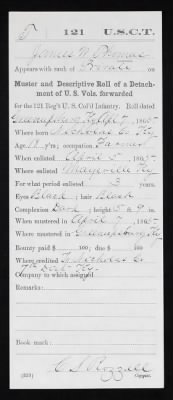 121 U.S.C.T.
James W
Appears with rank of Private on
Muster and Descriptive Roll of a Detach-
ment of U. S. Vols. forwarded
for the 121 Reg't U. S. Col'd Infantry. Roll dated
Greenupsburg Ky Apl 7, 1865.
Where born Nicholas Co Ky
Age 18 y'rs; occupation Farmer
When enlisted April 5, 1865.
Where enlisted Maysville Ky
For what period enlisted 3 years.
Eyes Black; hair Black
Complexion Dark; height 5 ft. 9 in.
When mustered in April 7, 1865.
Where mustered in Greenupsburg Ky
Bounty paid $ 100; due $ 100
Where credited Nicholas Co
Dist. Ky.
Company to which assigned
Remarks:
Book mark:
(339) Copyist.